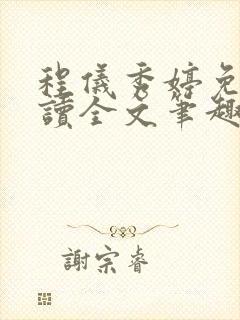 程儀秀婷免
讀全文筆趣
謝宗睿